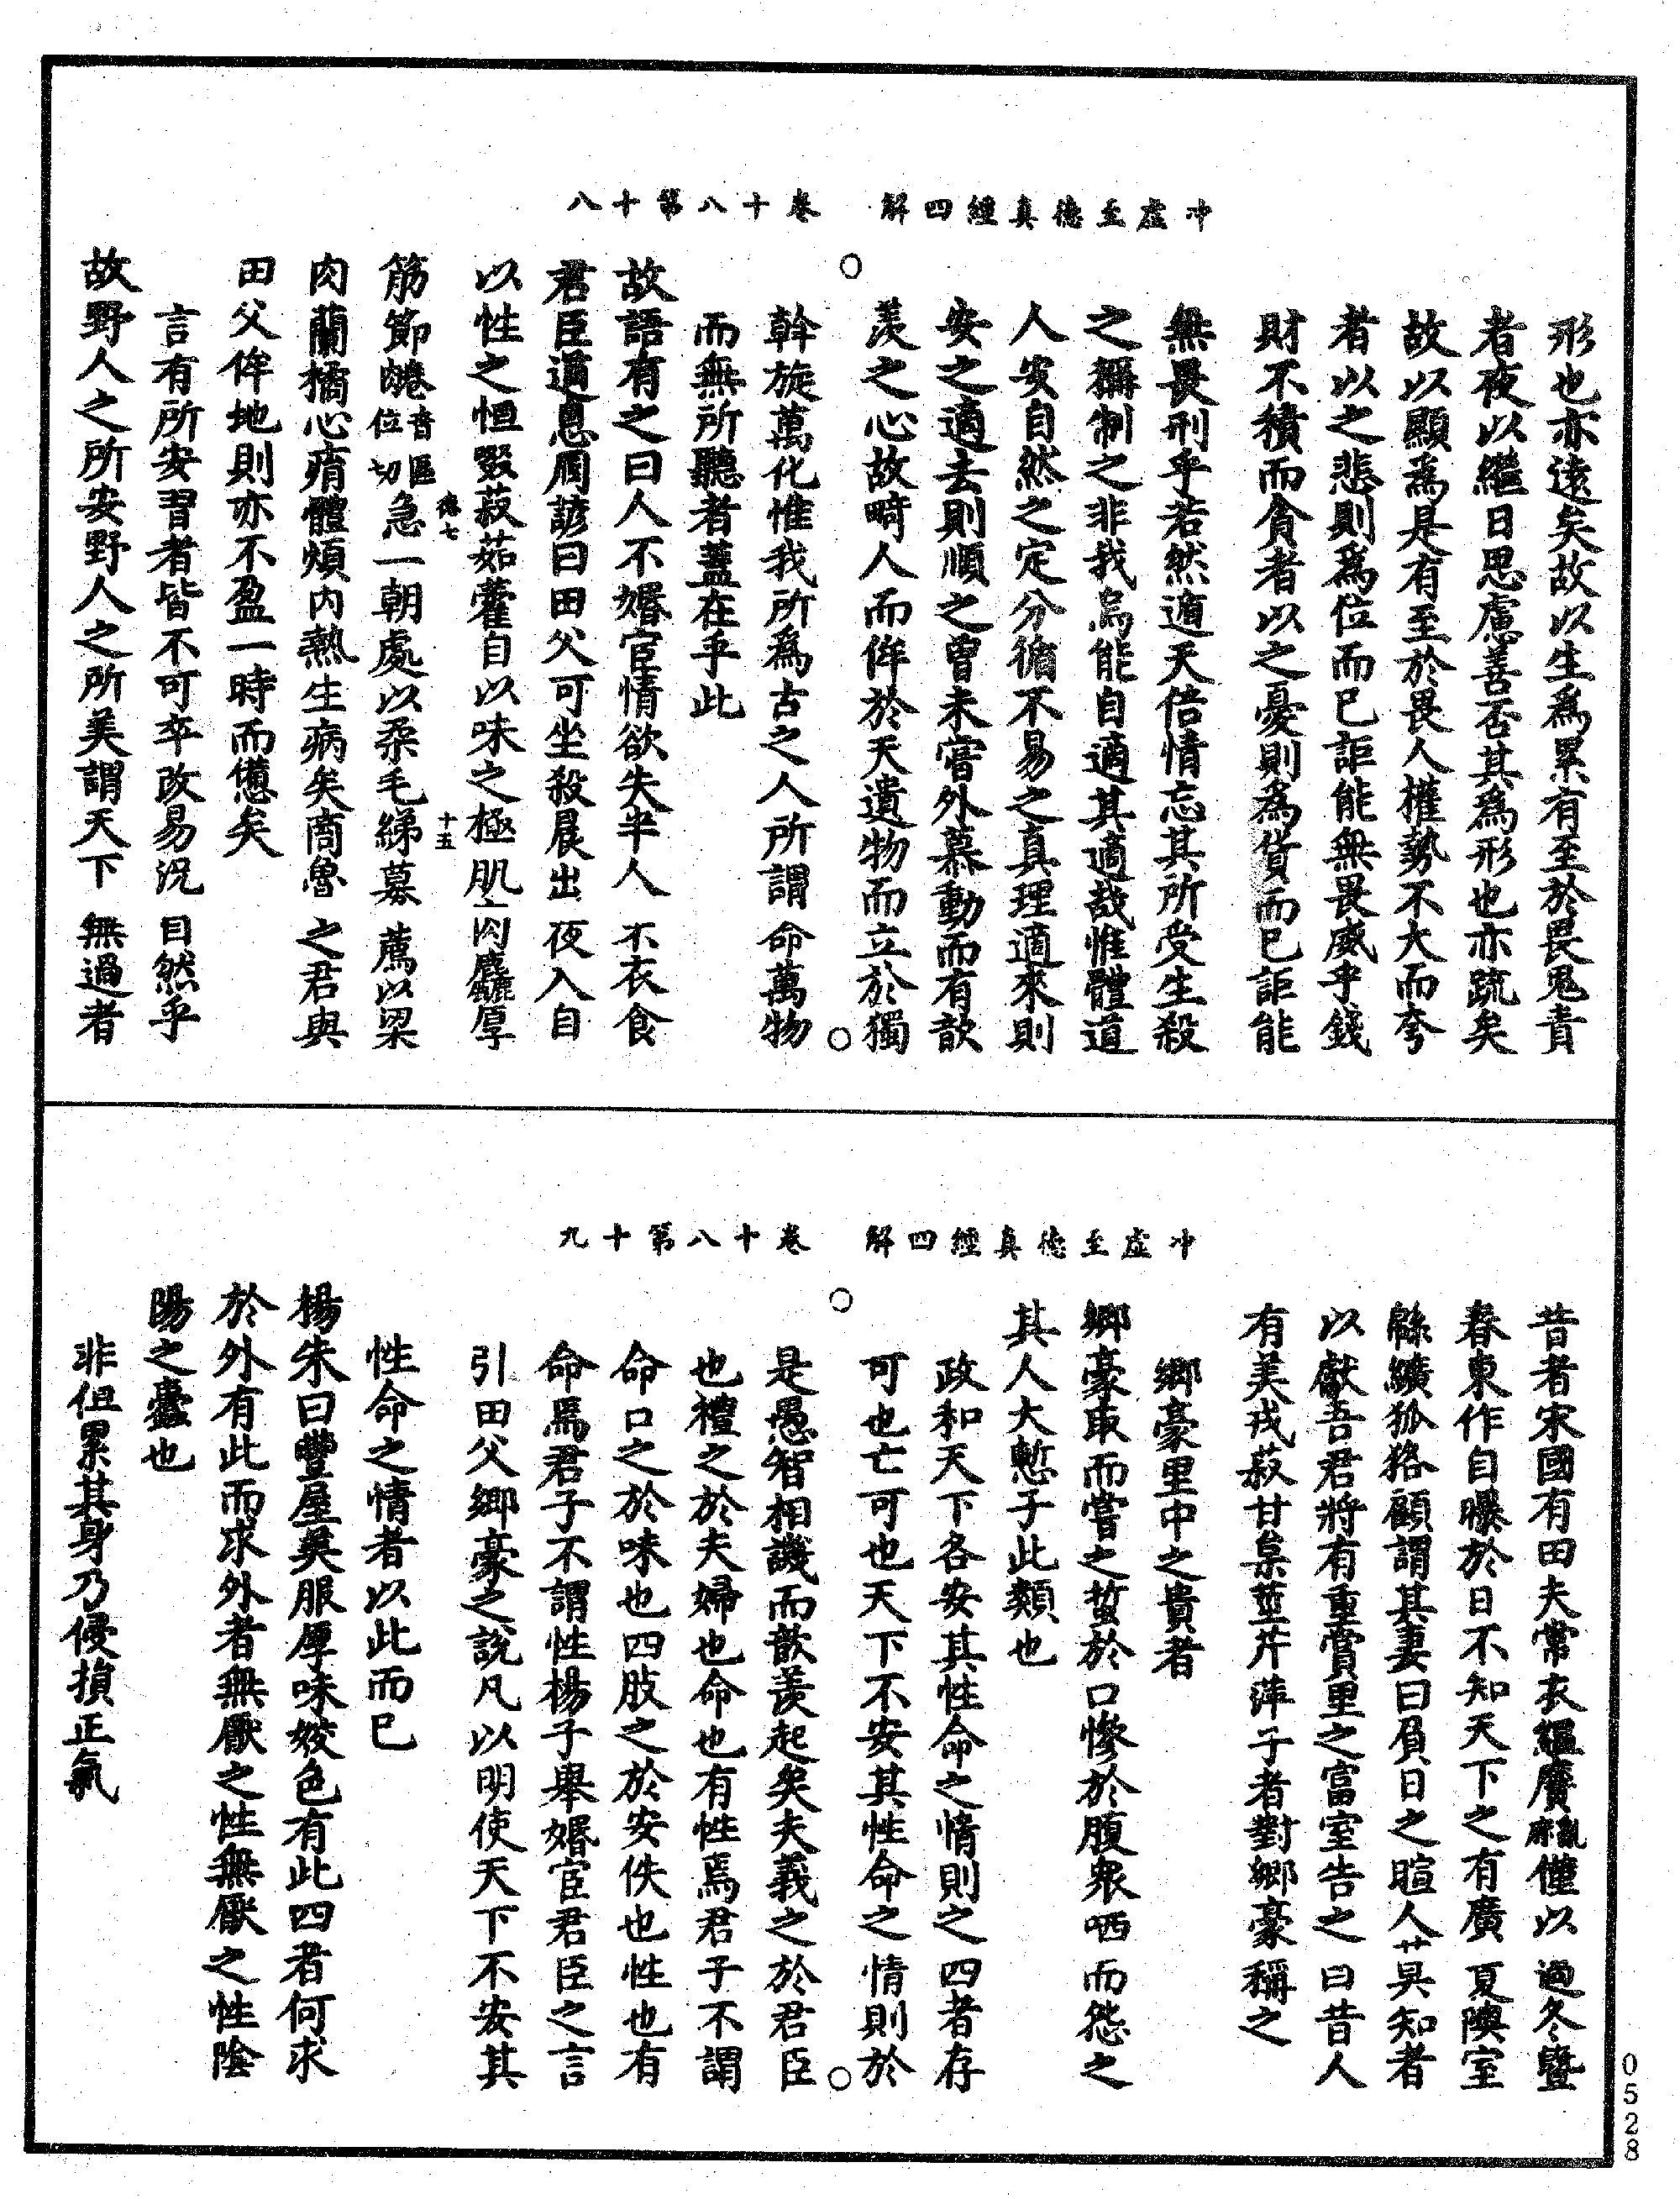 冲虚至德真經四解　卷十八第十八
形也亦遠矣故以生爲累有至於畏鬼責
者夜以繼日思慮善否其爲形也亦疏矣
故以顯爲是有至於畏人權勢不大而夸
者以之悲則爲位而已詎能無畏威乎錢
財不積而貪者以之憂則爲貨而已詎能
無畏刑乎若然遁天倍情忘其所受生殺
之羈制之非我烏能自適其適哉惟體道
人安自然之定分循不易之真理適來則
安之適去則順之曾未嘗外慕動而有歆
羨之心故畸人而侔於天遺物而立於獨
斡旋萬化惟我所爲古之人所謂命萬物
而無所聽者蓋在乎此
故語有之曰人不婚宦情欲失半人不衣食
君臣道息周諺曰田父可坐殺晨出夜入自
以性之恒啜菽茹藿自以味之極肌肉麤厚
筋節䏰音區位切急一朝處以柔毛綈幕薦以粱
肉蘭橘心痟體煩内熱生病矣商魯之君與
田父侔地則亦不盈一時而憊矣
言有所安習者皆不可卒改易況自然乎
故野人之所安野人之所美謂天下無過者
冲虚至德真經四解　卷十八第十九
昔者宋國有田夫常衣緼黂亂麻僅以過冬曁
春東作自曝於日不知天下之有廣夏隩室
緜纊狐狢顧謂其妻曰負日之暄人莫知者
以獻吾君將有重賞里之富室告之曰昔人
有美戎菽甘枲莖芹萍子者對鄉豪稱之
鄉豪里中之貴者
鄉豪取而嘗之蜇於口慘於腹衆哂而怨之
其人大慙子此類也
政和天下各安其性命之情則之四者存
可也亡可也天下不安其性命之情則於
是愚智相譏而歆羨起矣夫義之於君臣
也禮之於夫婦也命也有性焉君子不謂
命口之於味也四肢之於安佚也性也有
命焉君子不謂性楊子舉婚宦君臣之言
引田父鄉豪之說凡以明使天下不安其
性命之情者以此而已
楊朱曰豐屋美服厚味姣色有此四者何求
於外有此而求外者無厭之性無厭之性陰
陽之蠹也
非但累其身乃侵損正氣
0528